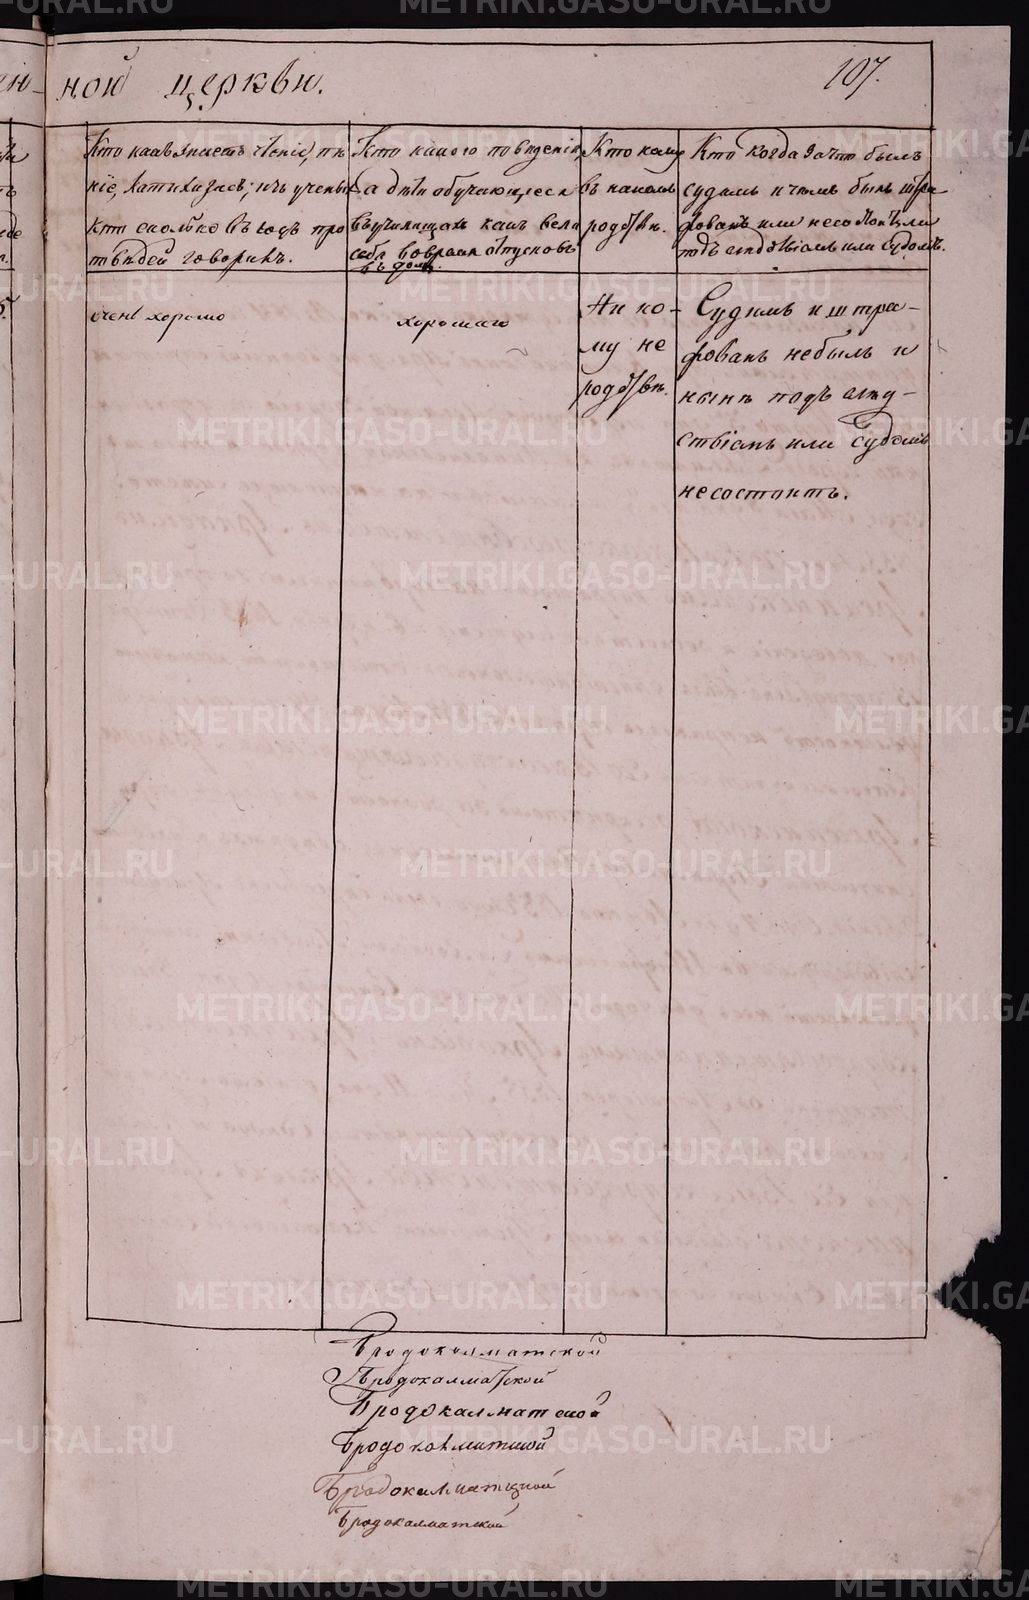 ной церкви.
107.
Кто какъ знаетъ чтеніе, пѣ
ніе, Катихизисъ; изъ ученыхъ
кто сколько въ годъ про
повѣдей говоритъ.
Кто какого поведенія,
а дѣти обучающіеся
въ училищахъ какъ вели
себя вовремя отпусковъ
въ домы.
Кто кому
въ какомъ
родствѣ.
Кто когда за что былъ
судимъ и чѣмъ былъ штра
фованъ или несостоитъ ли
подъ слѣдствіемъ или Судомъ.
очень хорошо
хорошаго
Ни ко-
му не
родствѣ.
Судимъ и штра-
фованъ небылъ и
нынѣ подъ слѣд-
ствіемъ или Судомъ
несостоитъ.
Бродокалматской
Бродокалматской
Бродокалматской
Бродокалматской
Бродокалматской
Бродокалматской
METRIKI.GASO-URAL.RU